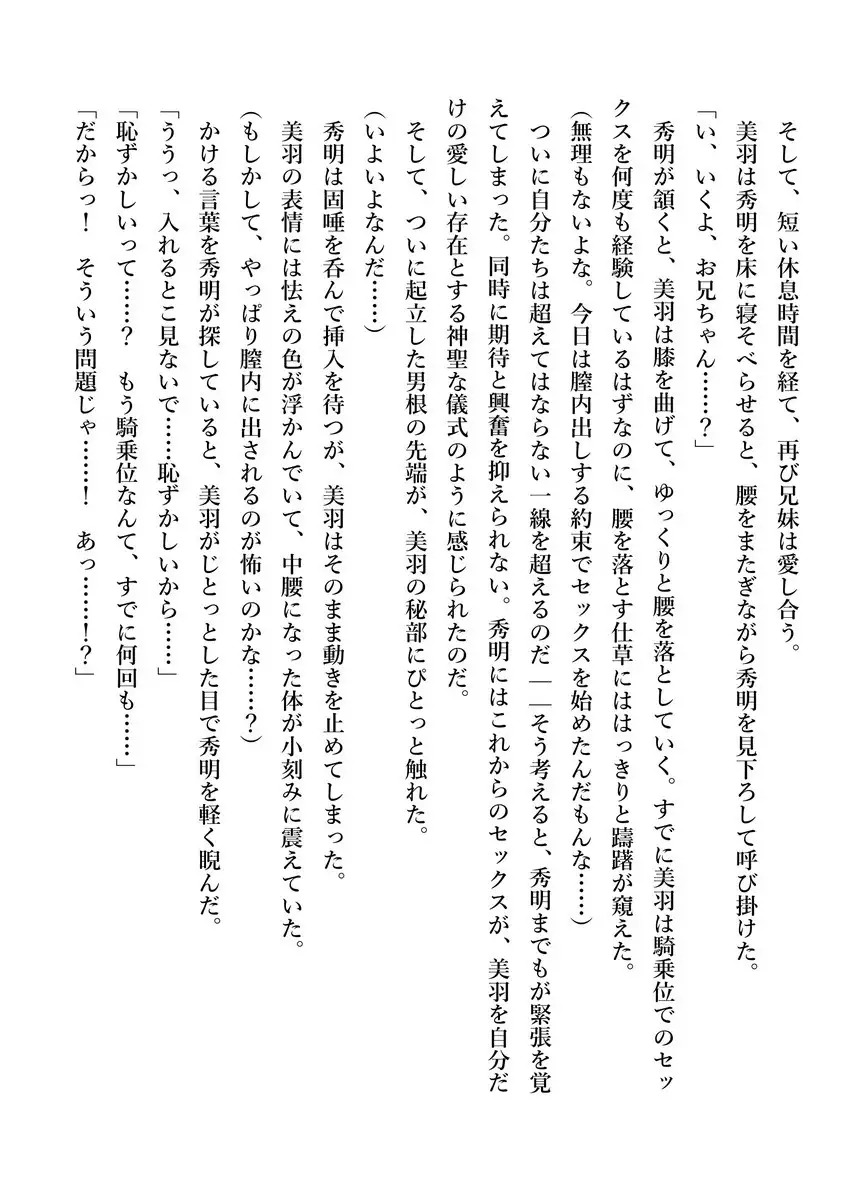 そして、短い休息時間を経て、再び兄妹は愛し合う。
美羽は秀明を床に寝そべらせると、腰をまたぎながら秀明を見下ろして呼び掛けた。
「い、いくよ、お兄ちゃん……？」
秀明が頷くと、美羽は膝を曲げて、ゆっくりと腰を落としていく。すでに美羽は騎乗位でのセッ
クスを何度も経験しているはずなのに、腰を落とす仕草にははっきりと躊躇が窺えた。
（無理もないよな。今日は膣内出しする約束でセックスを始めたんだもんな……）
ついに自分たちは超えてはならない一線を超えるのだ――そう考えると、秀明までもが緊張を覚
えてしまった。同時に期待と興奮を抑えられない。秀明にはこれからのセックスが、美羽を自分だ
けの愛しい存在とする神聖な儀式のように感じられたのだ。
そして、ついに起立した男根の先端が、美羽の秘部にぴとっと触れた。
（いよいよなんだ……）
秀明は固唾を呑んで挿入を待つが、美羽はそのまま動きを止めてしまった。
美羽の表情には怯えの色が浮かんでいて、中腰になった体が小刻みに震えていた。
（もしかして、やっぱり膣内に出されるのが怖いのかな……？）
かける言葉を秀明が探していると、美羽がじとっとした目で秀明を軽く睨んだ。
「ううっ、入れるとこ見ないで……恥ずかしいから……」
「恥ずかしいって……？　もう騎乗位なんて、すでに何回も……」
「だからっ！　そういう問題じゃ……！　あっ……！？」